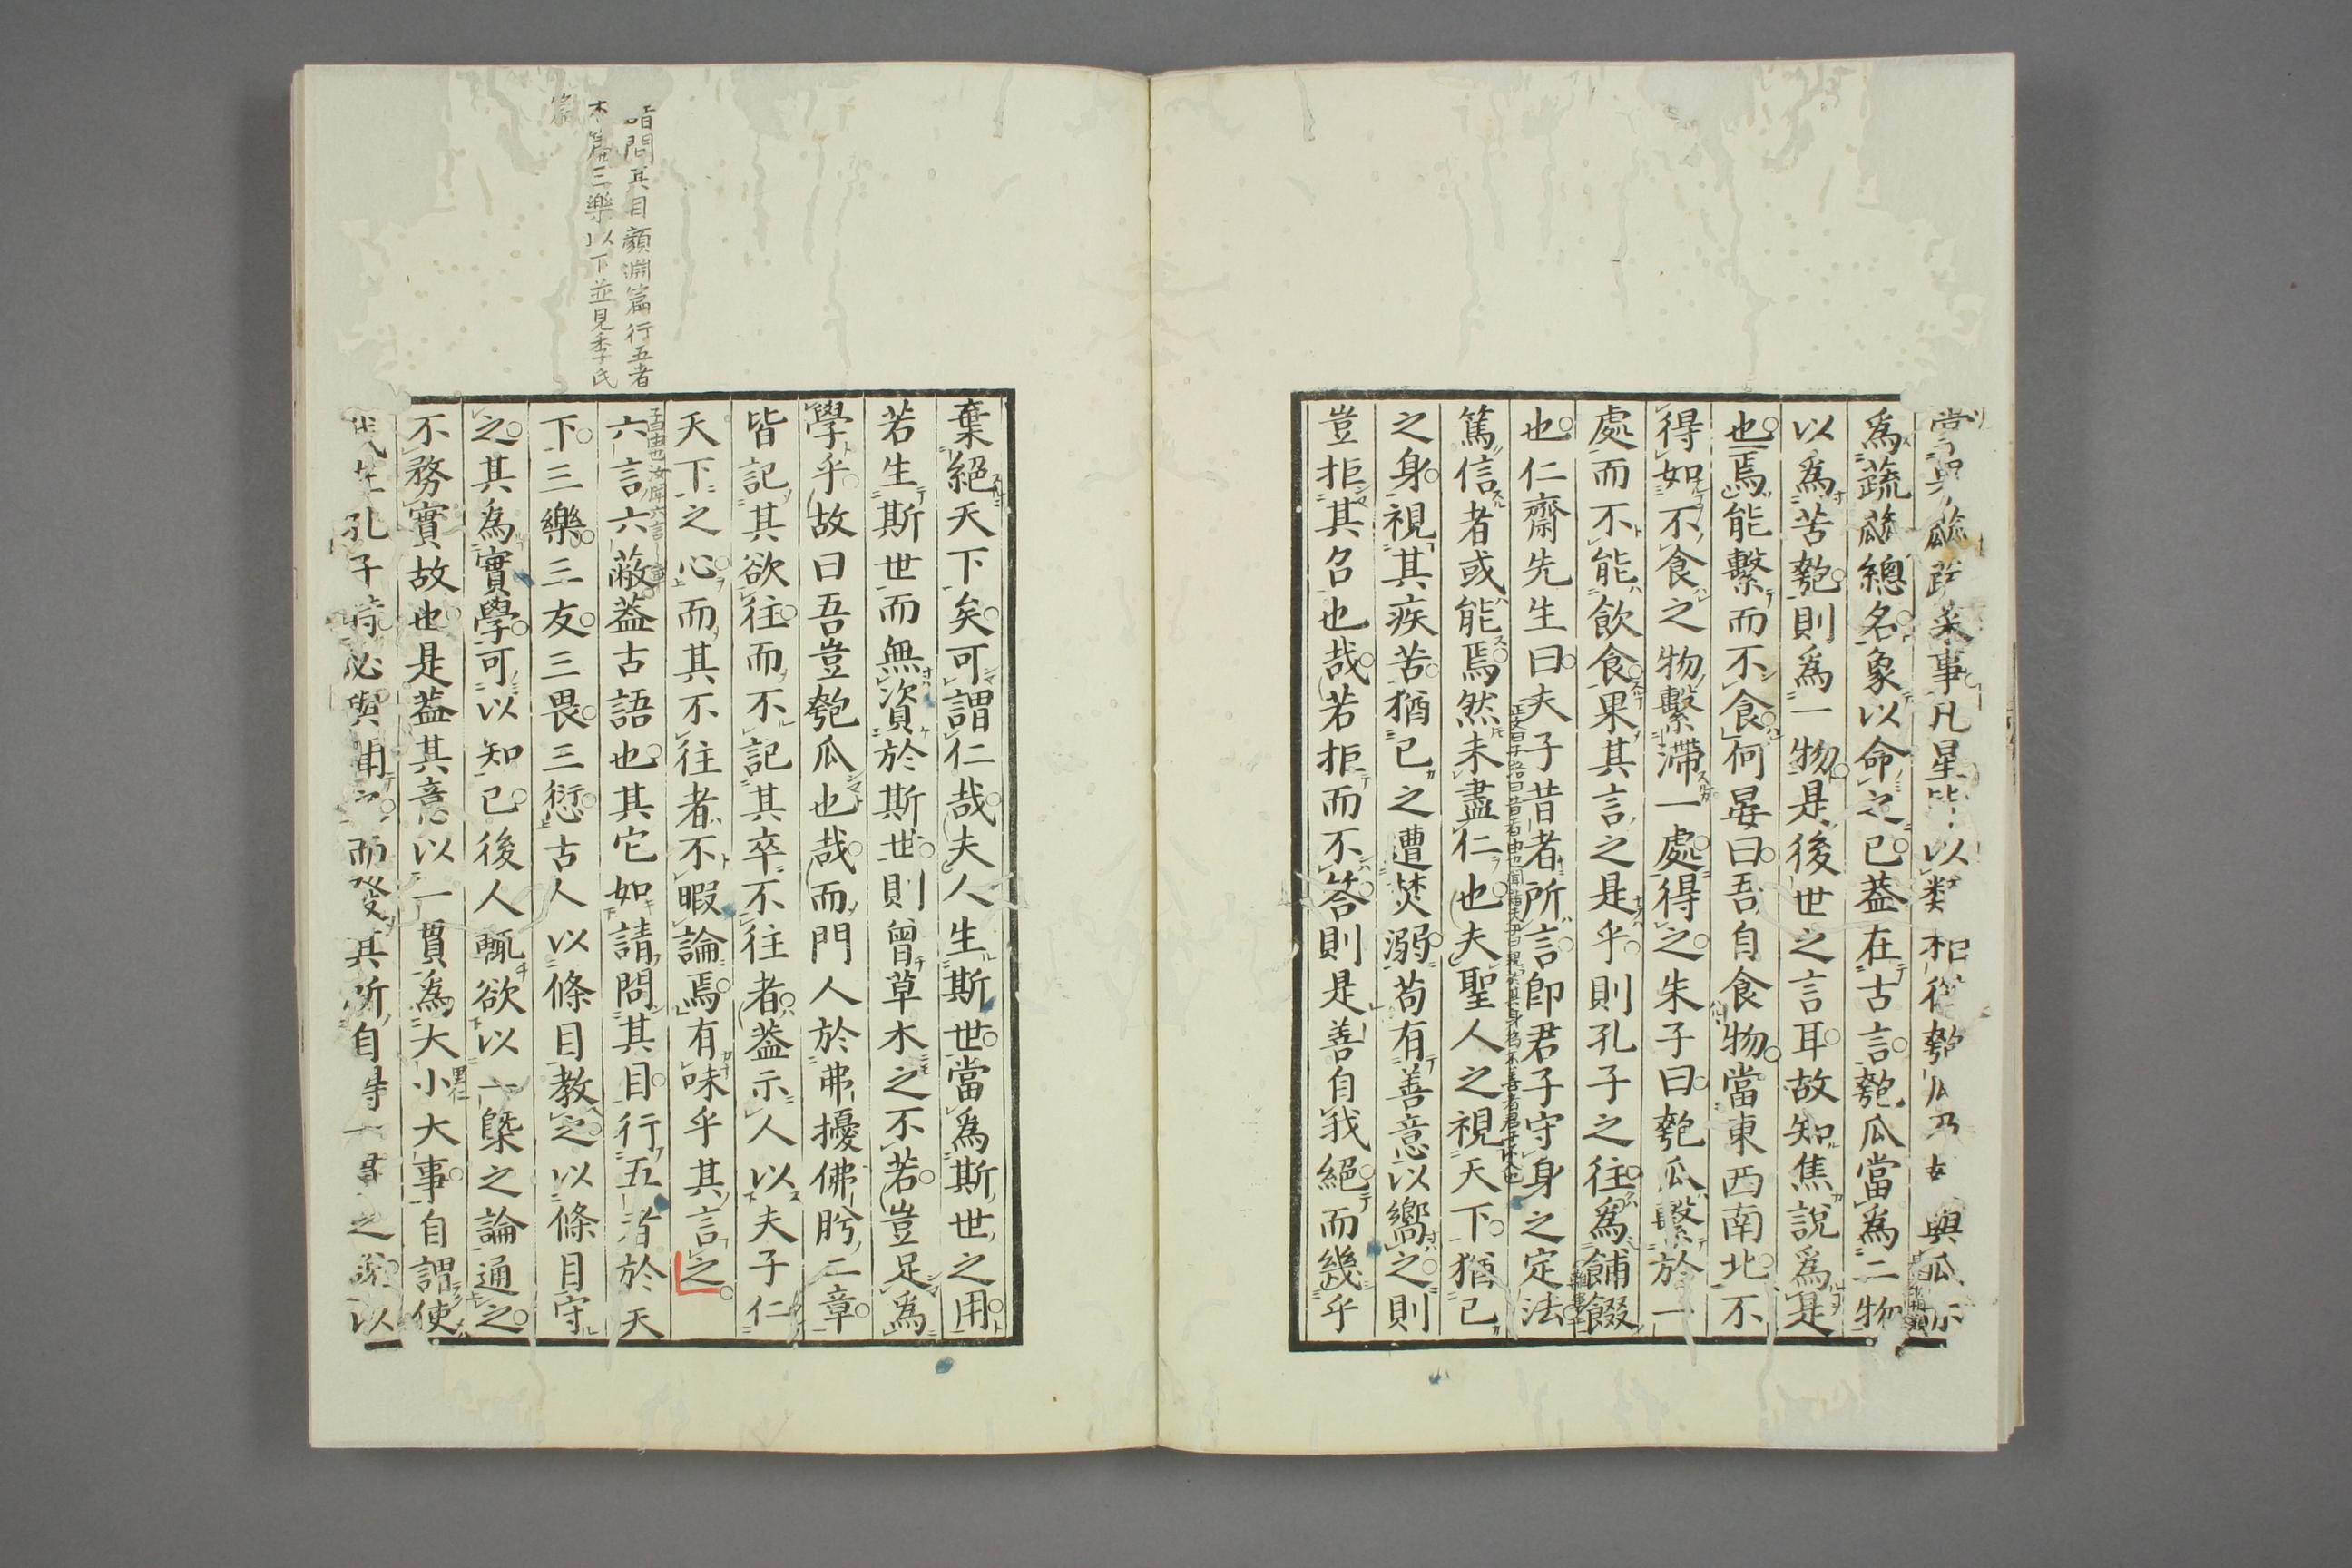 當與瓜蓏蔬菜事凡星皆以類相從匏瓜乃與瓜
爲蔬蓏總名象以命之已蓋在古言匏瓜當爲二物
以爲苦匏則爲一物是後世之言耳故知焦說爲是
也焉能繫而不食何晏曰吾自食物當東西南北不
得如不食之物繫滯一處得之朱子曰匏瓜繫於一
處而不能飲食果其言之是乎則孔子之往爲餔餟
也仁齋先生曰夫子昔者所言卽君子守身之定法
篤信者或能焉然未盡仁也夫聖人之視天下猶己
之身視其疾苦猶已之遭焚溺苟有善意以嚮之則
豈拒其召也哉若拒而不答則是善自我絕而幾乎
棄絕天下矣可謂仁哉夫人生斯世當爲斯世之用
若生斯世而無資於斯世則曾草木之不若豈足爲
學乎故曰吾豈匏瓜也哉而門人於弗擾佛肸二章
皆記其欲往而不記其卒不往者蓋示人以夫子仁
天下之心而其不往者不暇論焉有味乎其言之
子曰由也汝聞六言
六言六蔽蓋古語也其它如請問其目行五者於天
下三樂三友三畏三愆古人以條目教之以條目守
之其為實學可以知已後人輒欲以一槩之論通之
不務實故也是蓋其意以一貫爲大小大事自謂使
我生孔子時必與聞之而發其所自得一貫之說以
請問其目顏淵篇行五者
本篇三樂以下並見季氏
篇